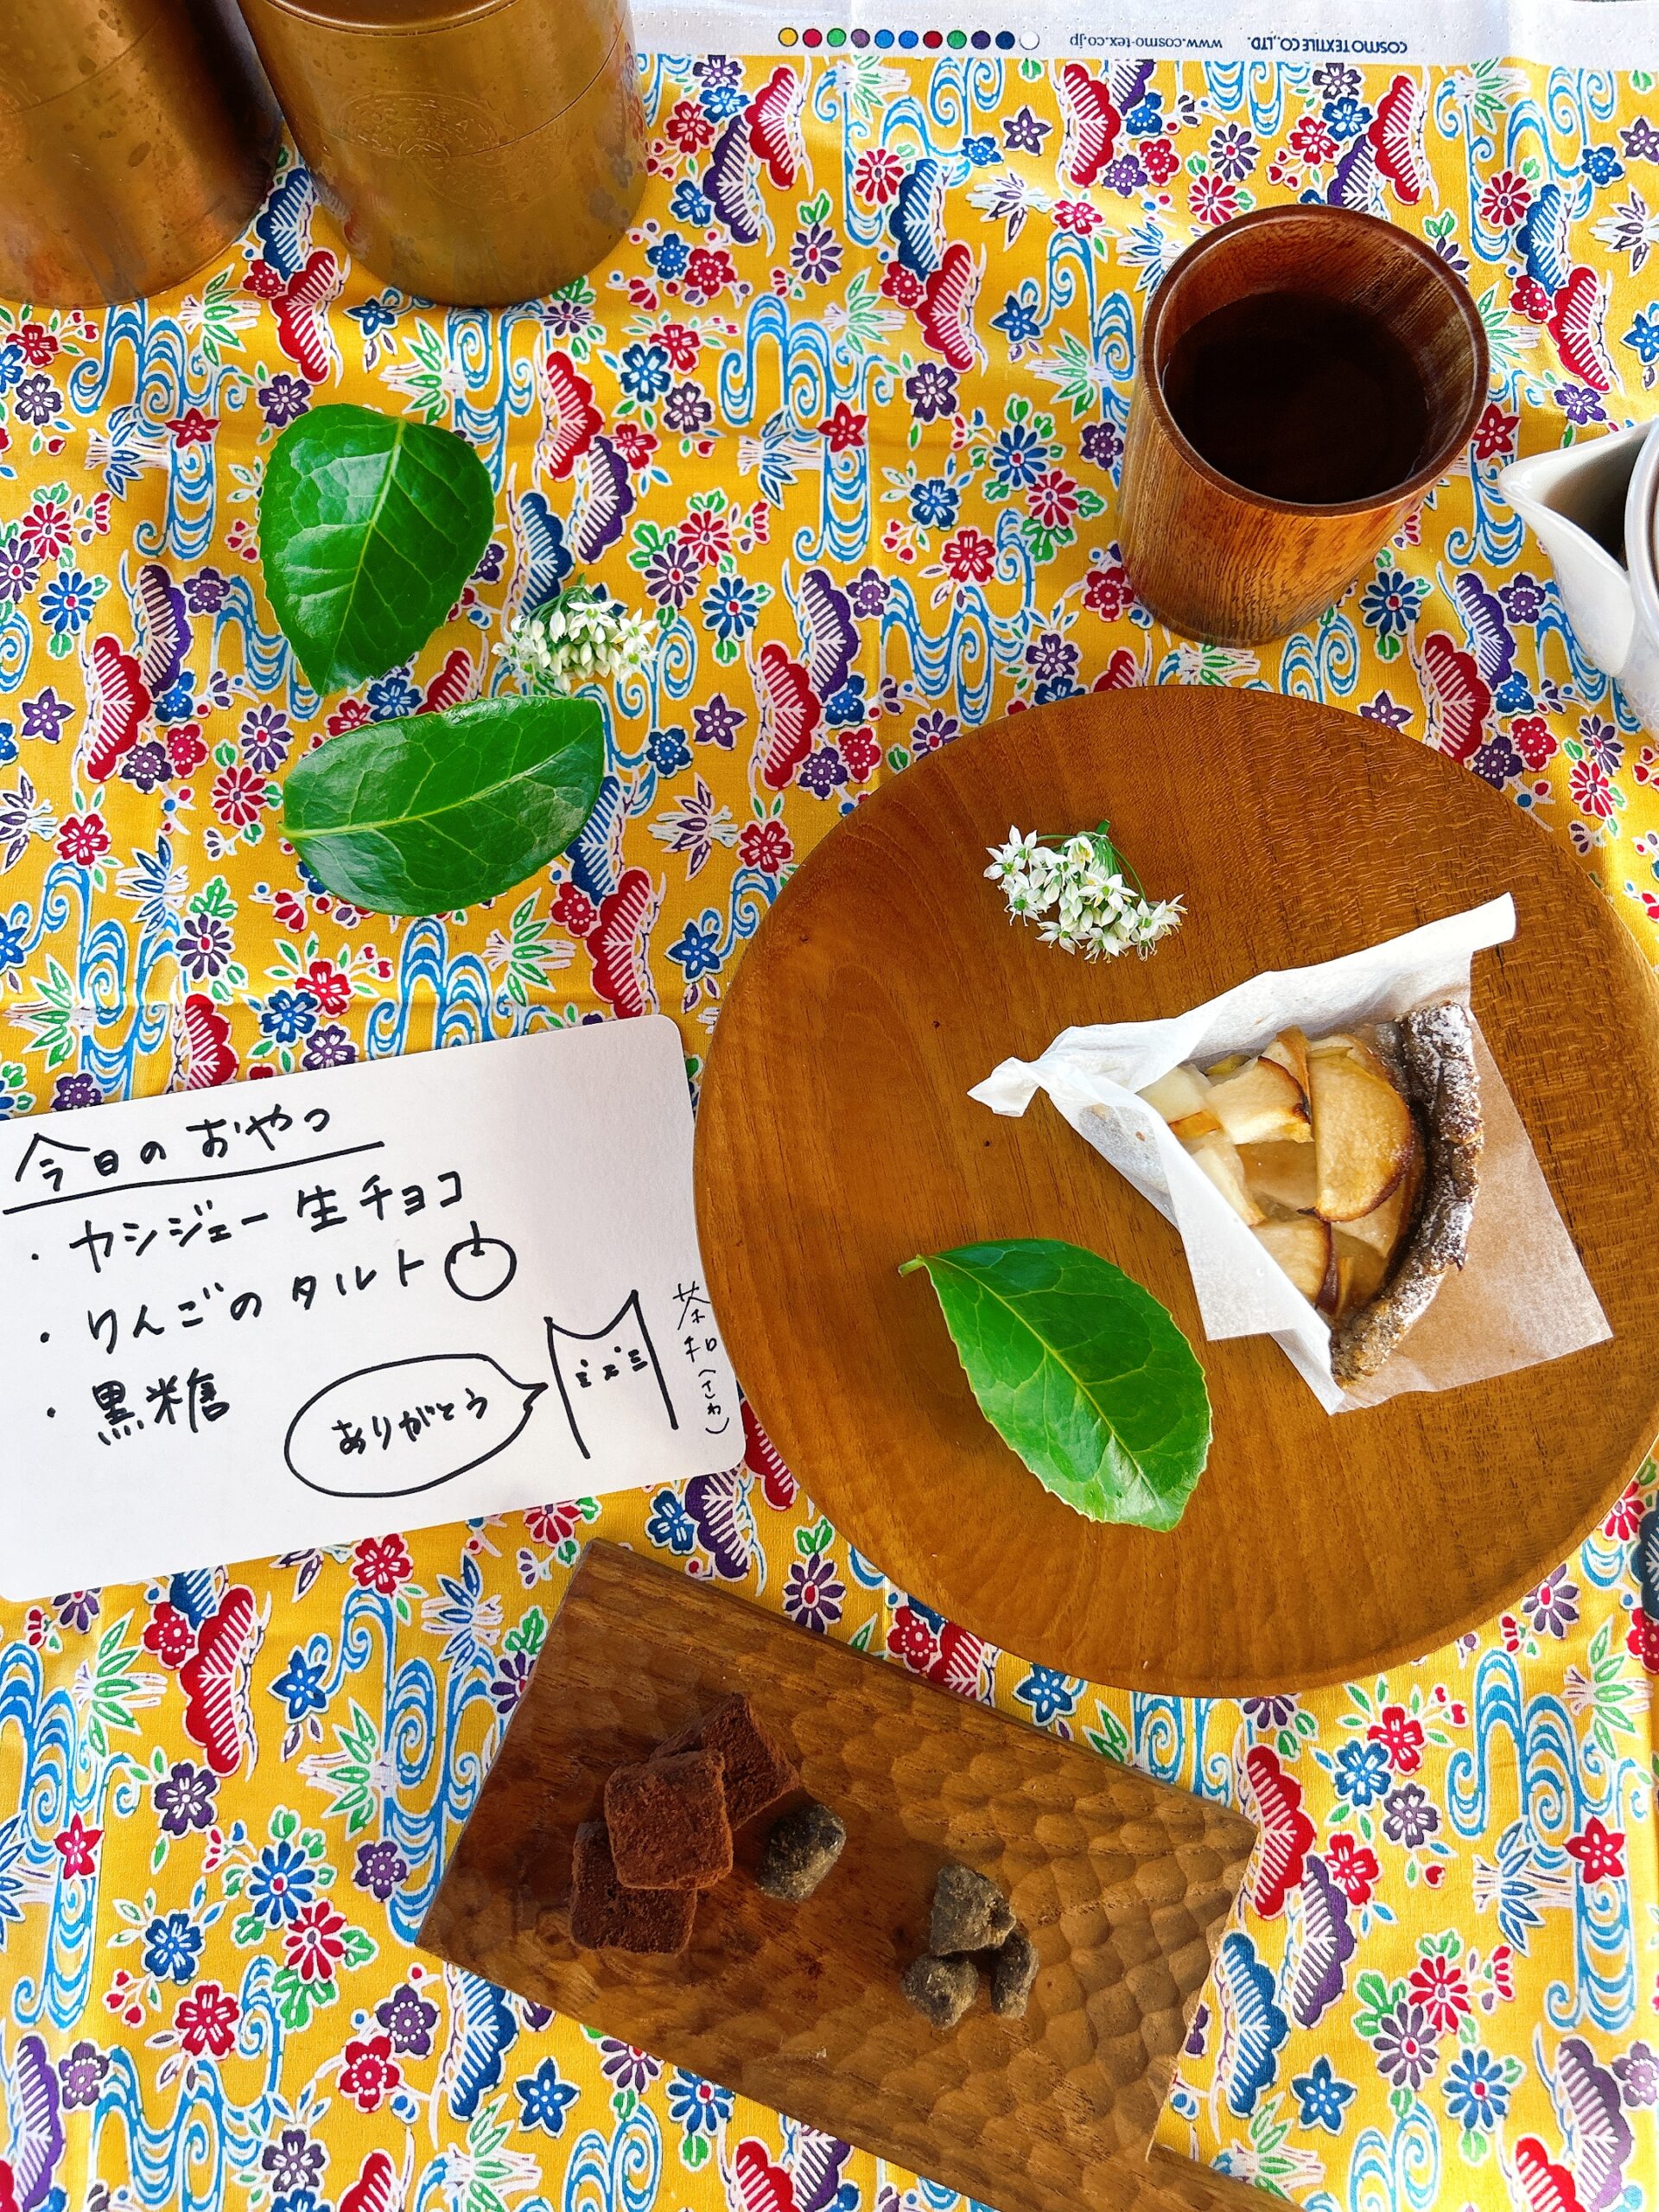 COSMO TEXTILE CO.,LTD. www.cosmo-tex.co.jp
今日のおやつ
・カシジェー生チョコ
・りんごのタルト
・黒糖
ありがとう
茶和(さわ)